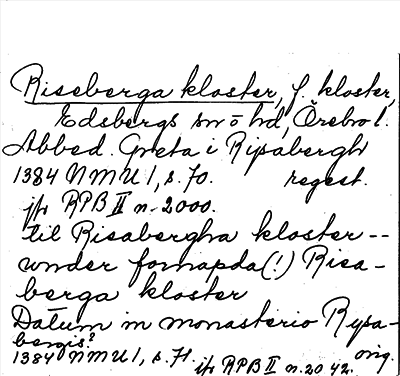 Riseberga kloster, f. kloster,
Edsbergs sn o hd, Örebro l.
Abbed. Greta i Risabergh
1384 NMU 1, s. 70. regest.
jfr RPB II n. 2000.
til Risabergha kloster --
wnder fornapda (!) Risa-
berga kloster
Datum in monasterio Rysa-
bergis?
1384 NMU 1, s. 71. orig.
jfr RPB II n. 2042.